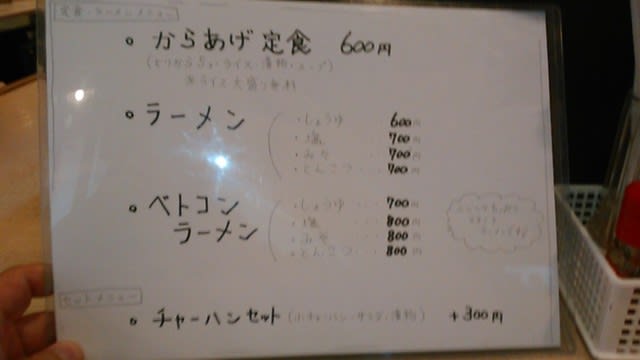 定食・ラーメンメニュー
。からあげ定食 600円
(とりから5ヶ・ライス・漬物・スープ)
※ライス大盛り無料
。ラーメン
・しょうゆ ・・・ 600円
・塩 ・・・ 700円
・みそ ・・・ 700円
・とんこつ ・・・ 700円
。ベトコンラーメン
・しょうゆ ・・・ 700円
・塩 ・・・ 800円
・みそ ・・・ 800円
・とんこつ ・・・ 800円
セットメニュー
。チャーハンセット (小チャーハン・サラダ・漬物) +300円